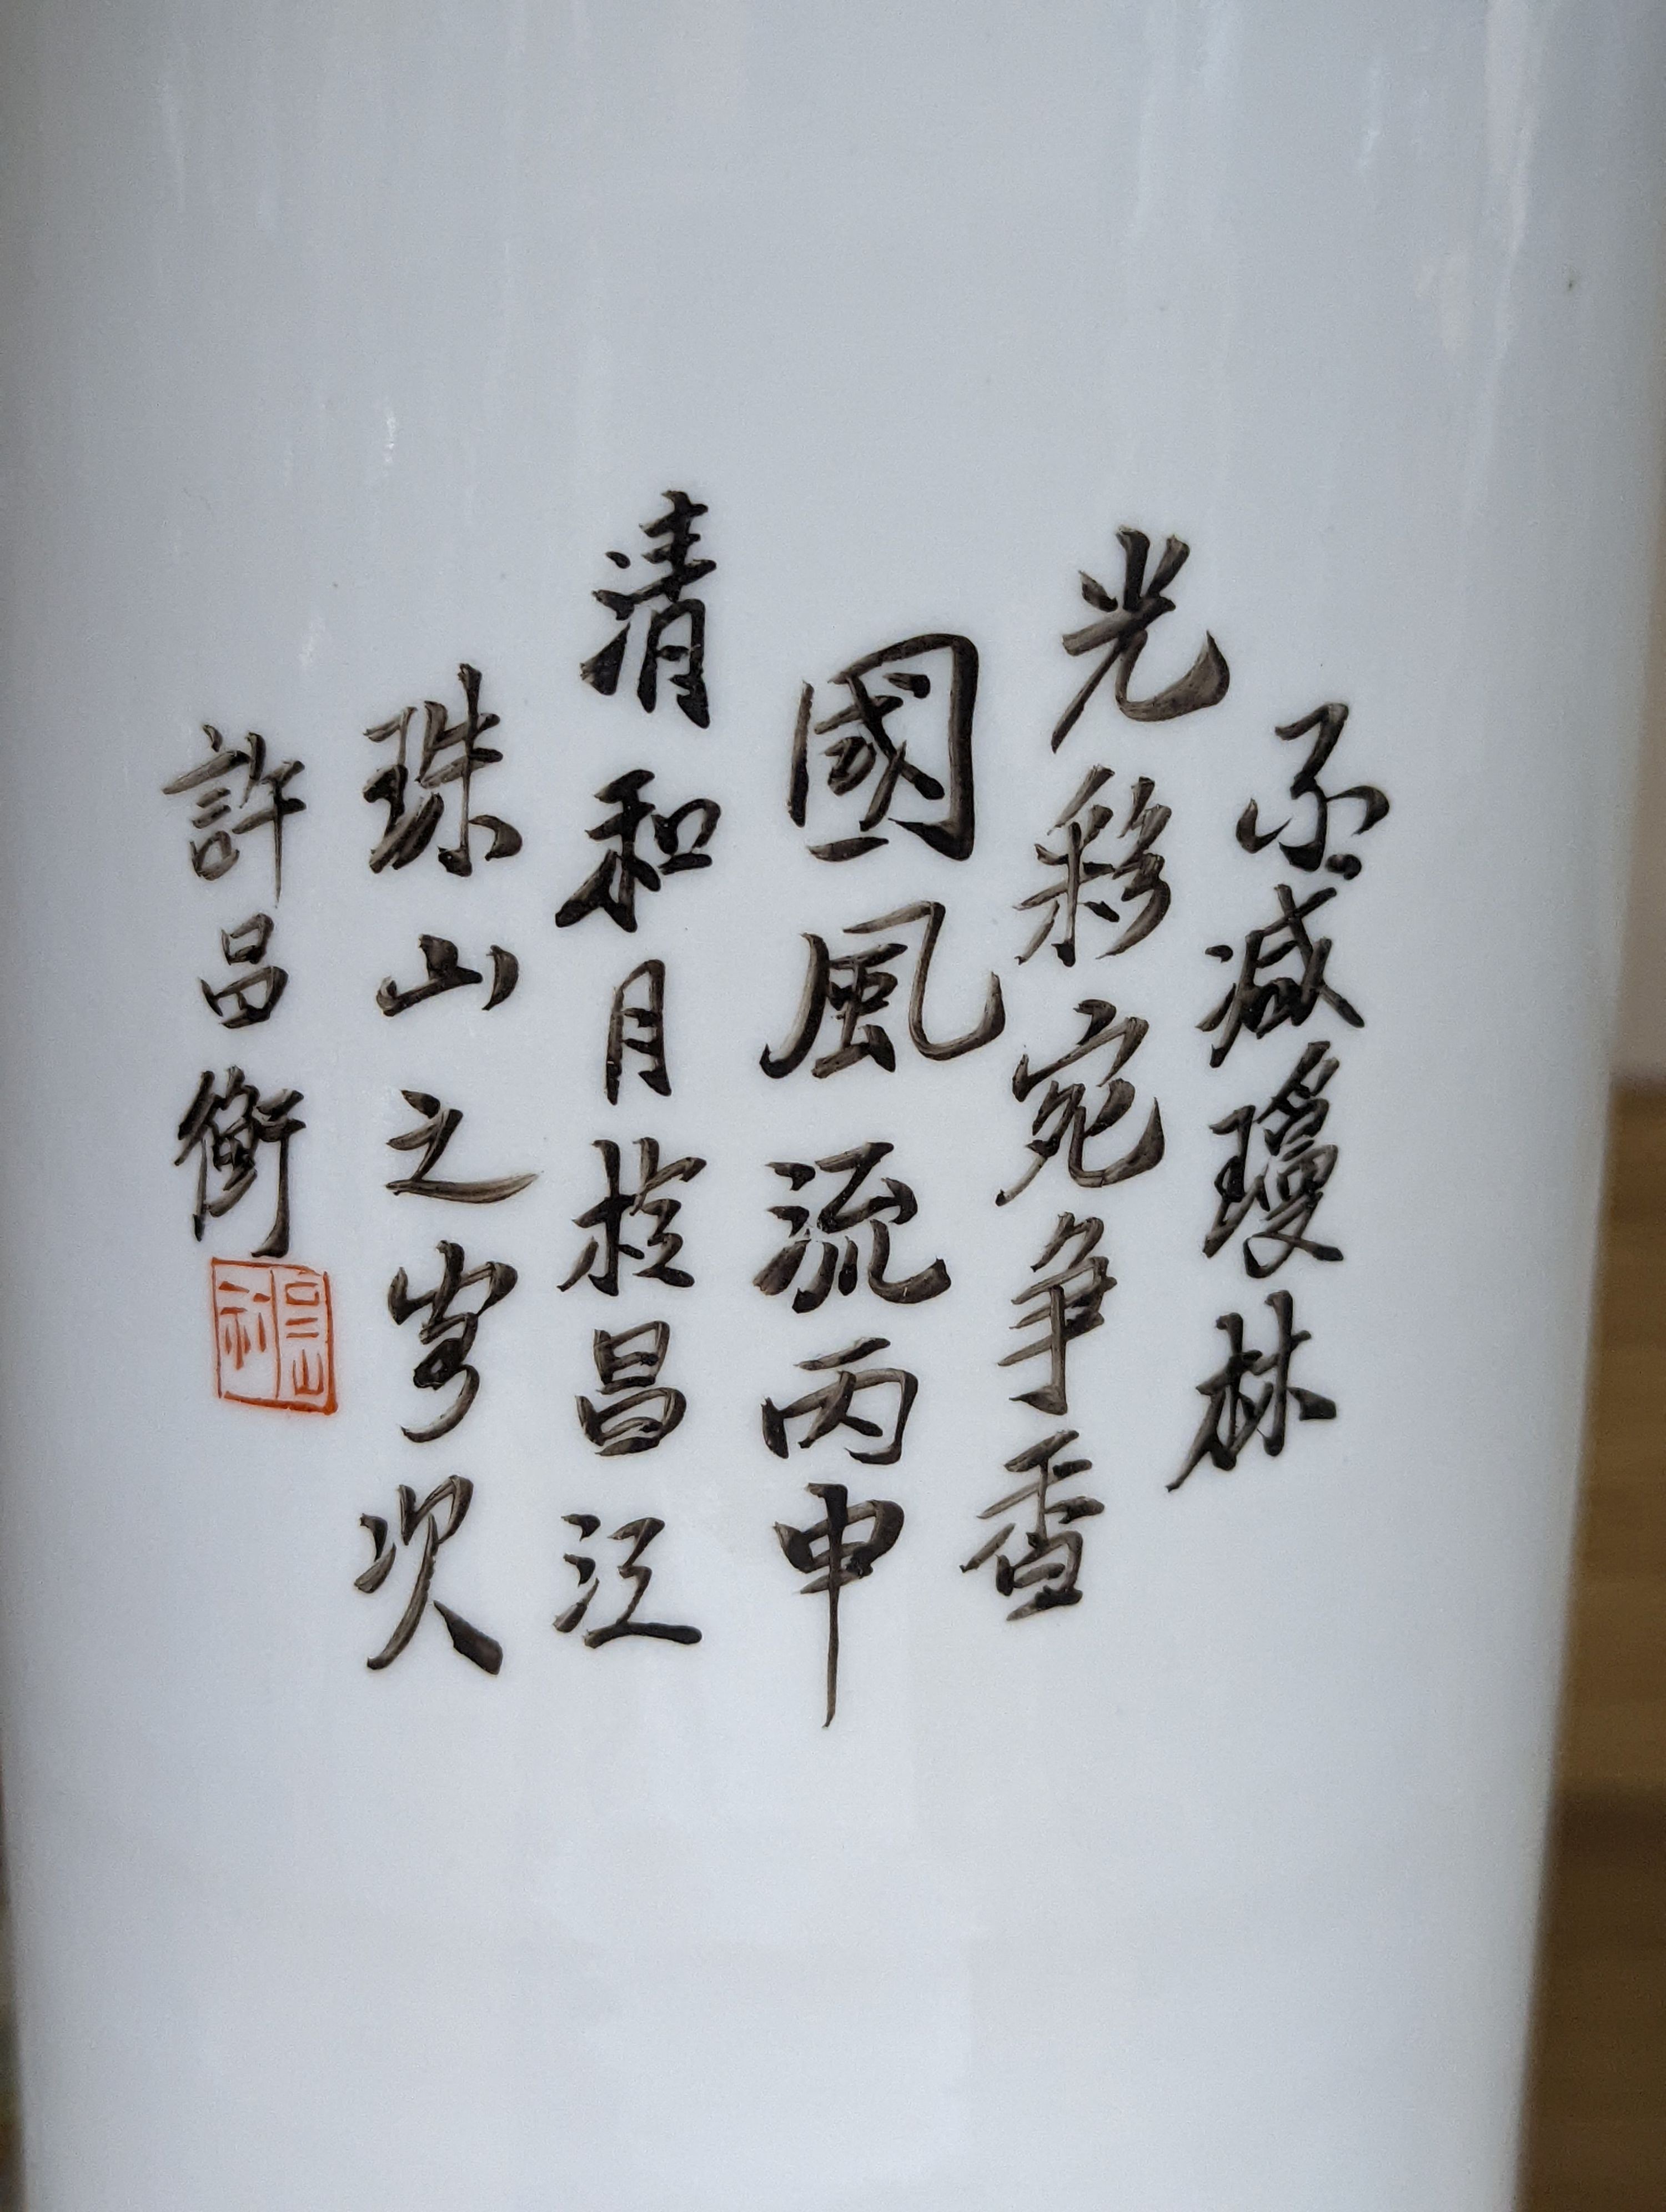 不减瓊林
光彩宛争香
國風流丙申
清和月於昌江
珠山之次
許昌衡